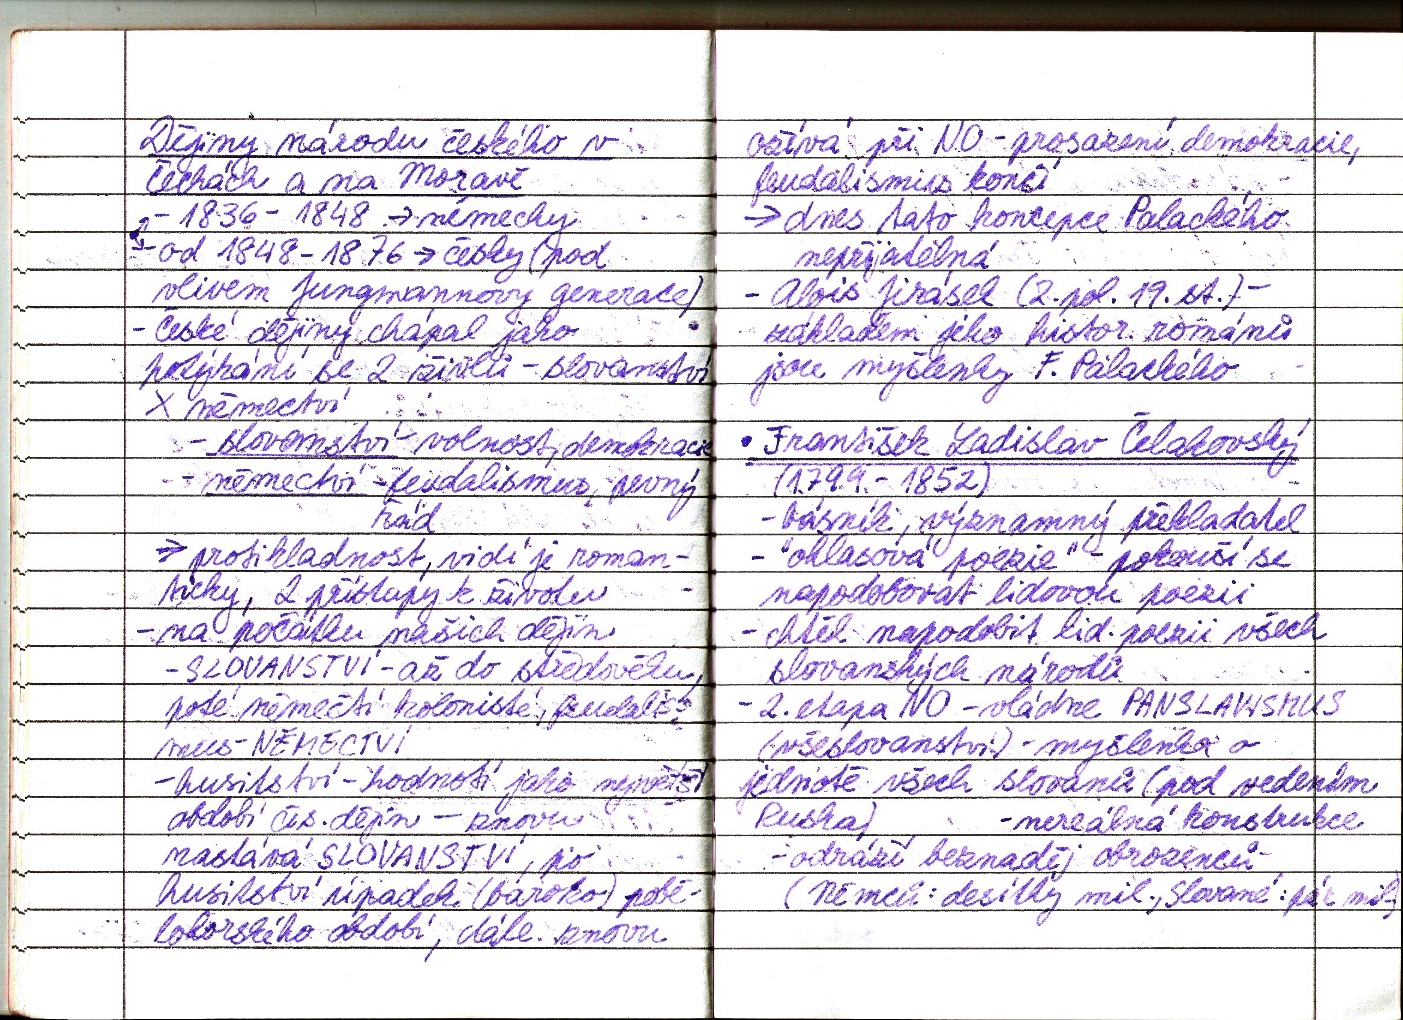 Dějiny národu českého v
Čechách a na Moravě
- 1836 - 1848 → německy
- od 1848 - 1876 → česky (pod
vlivem Jungmannovy generace)
- české dějiny chápal jako
potýkání se 2 živlů - slovanství
X němectví
- slovanství - volnost, demokracie
- němectví - feudalismus, pevný
řád
→ protikladnost, vidí je roman-
ticky, 2 přístupy k životu
- na počátku našich dějin
- SLOVANSTVÍ - až do středověku,
poté němečtí kolonisté, feudalis-
mus - NĚMECTVÍ
- husitství - hodnotí jako největší
období čes. dějin - znovu
nastává SLOVANSTVÍ, po
husitství úpadek (baroko) pobě-
lohorského období, dále znovu
ožívá při NO - prosazení demokracie,
feudalismus končí
→ dnes tato koncepce Palackého
nepřijatelná
- Alois Jirásek (2. pol. 19. st.) -
základem jeho histor. románů
jsou myšlenky F. Palackého
• František Ladislav Čelakovský
(1799 - 1852)
- básník, významný překladatel
- "ohlasová poezie" - pokouší se
napodobovat lidovou poezii
- chtěl napodobit lid. poezii všech
slovanských národů
- 2. etapa NO - vládne PANSLAVISMUS
(všeslovanství) - myšlenka o
jednotě všech slovanů (pod vedením
Ruska) - nereálná konstrukce
- odráží beznaděj obrozenců
(Němci: desítky mil., Slované: pár mil)